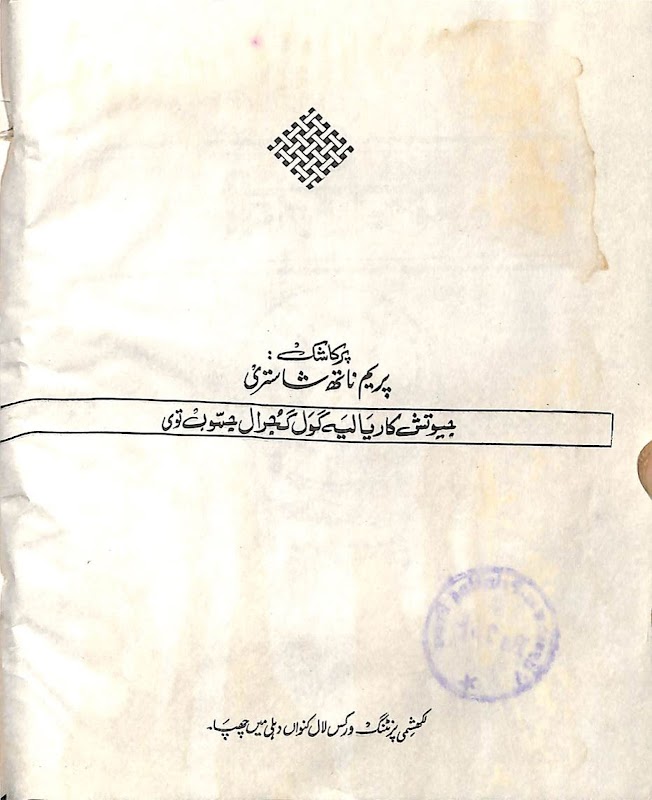 پرکاشک:
پریم ناتھ شاستری
جیوتش کاریالیہ گول گجرال جموں توی
لکھشمی پرنٹنگ ورکس لال کنواں دہلی میں چھپا۔